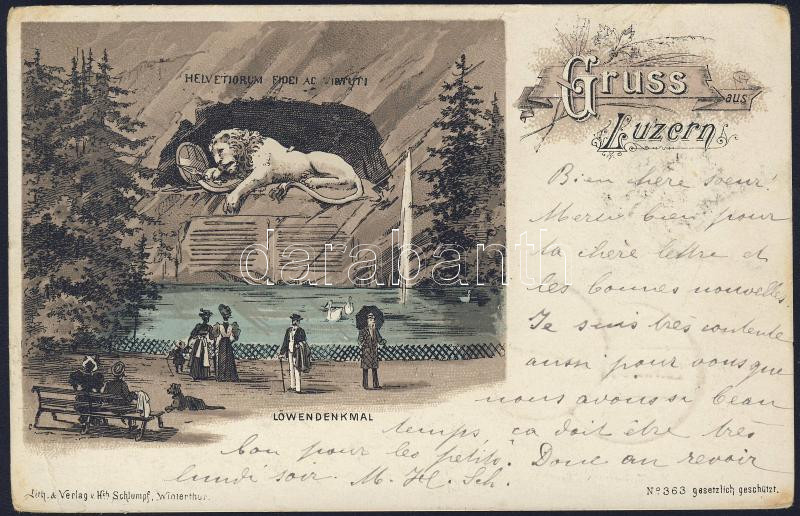 HELVETIORUM FIDEI AC VIRTUTI
Gruss
aus
Luzern
Bien chère soeur!
Merci bien pour
ta chère lettre et
les bonnes nouvelles.
Je suis très contente
aussi pour vous que
nous avons si beau
temps, ca doit être très
bon pour les petits. Donc au revoir
lundi soir. M. H. Sch.
LÖWENDENKMAL
darabanth
Lith. & Verlag v. Hch Schlumpf, Winterthur.
No 363 gesetzlich geschützt.